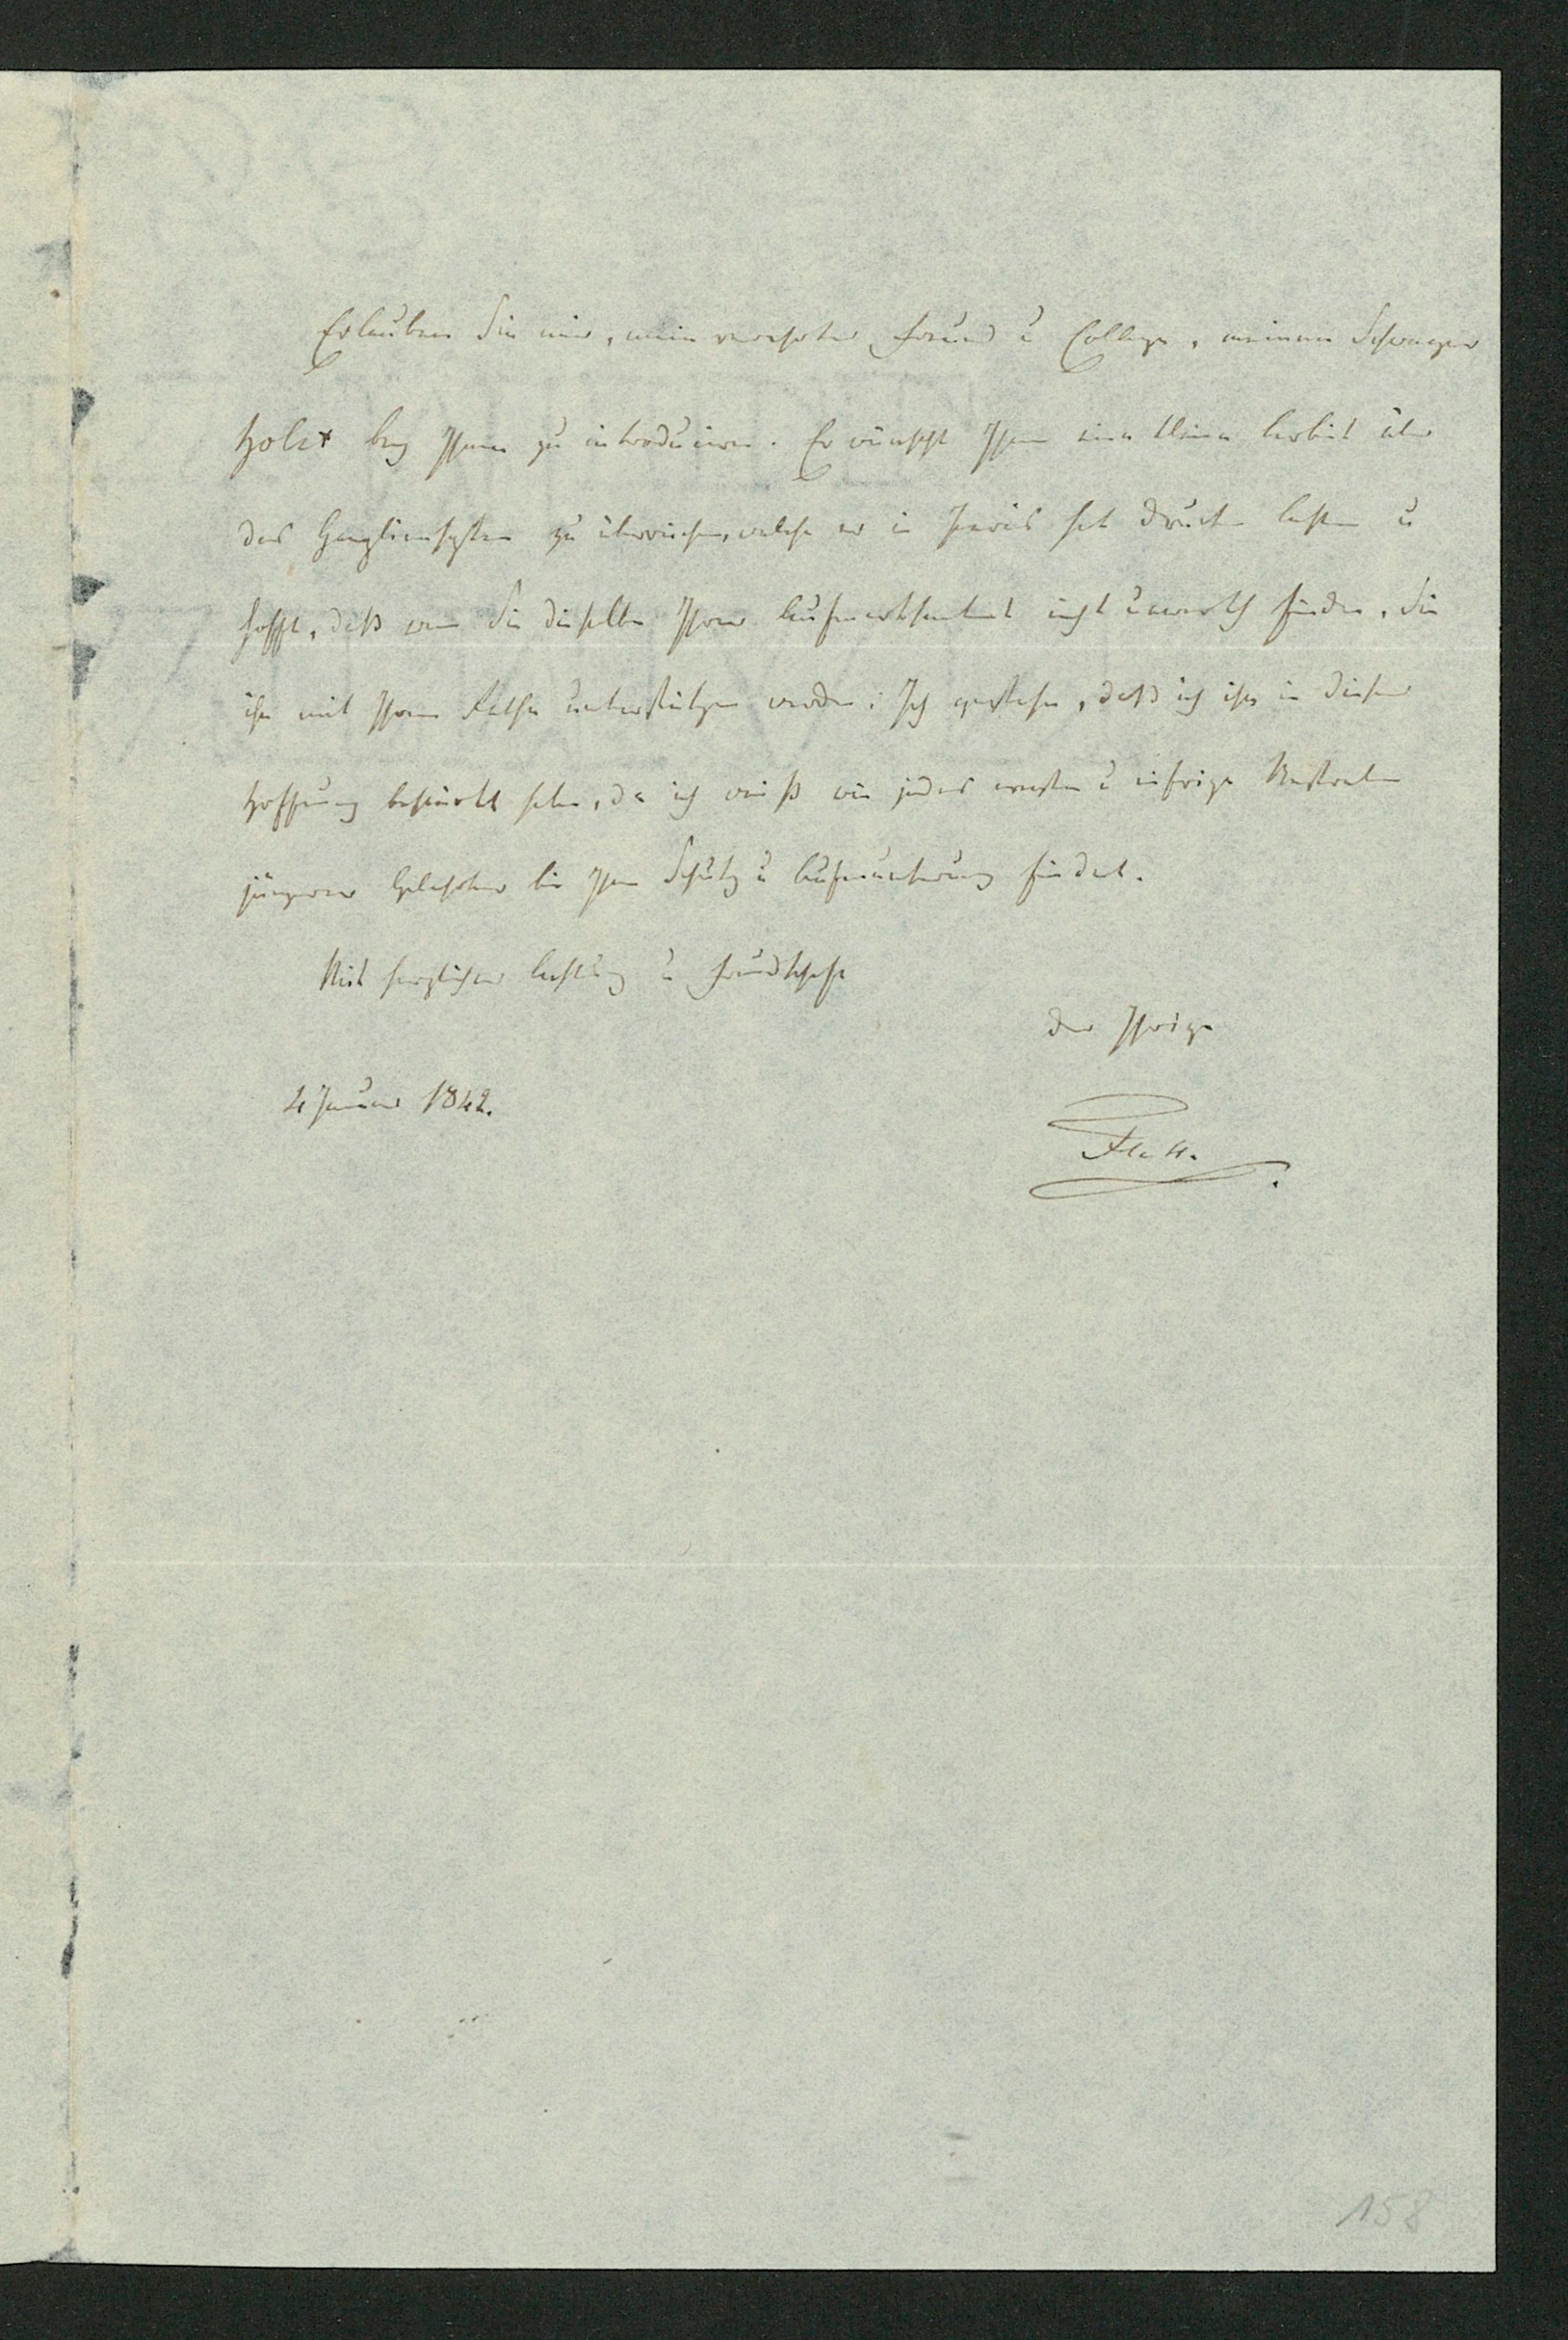 Erlauben Sie mir, mein verehrter Freund u College, meinen Schwager
bey Ihnen zu introduciren. Er wünscht Ihnen eine kleine Arbeit über
das Gangliensystem zu überreichen, welche er in Paris hat drucken lassen u
hofft, daß wenn Sie dieselbe Ihrer Aufmerksamkeit nicht unwerth finden, Sie
ihn mit Ihrem Rathe unterstützen werden. Ich gestehe, daß ich ihn in dieser
Hoffnung bestärkt habe, da ich weiß wie jedes ernste u eifrige Bestreben
jüngerer Gelehrter bei Ihnen Schutz u Aufmunterung findet.
Mit herzlicher Achtung u Freundschaft
der Ihrige
4 Januar 1842.
158